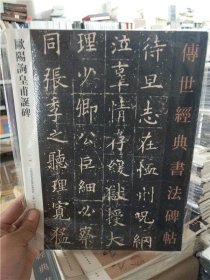 傳世經典書法碑帖
待旦志在恤刑咒網
泣辜情存緩獄授大
理少卿公巨細必察
同張季之聽理寬猛
歐陽詢皇甫誕碑